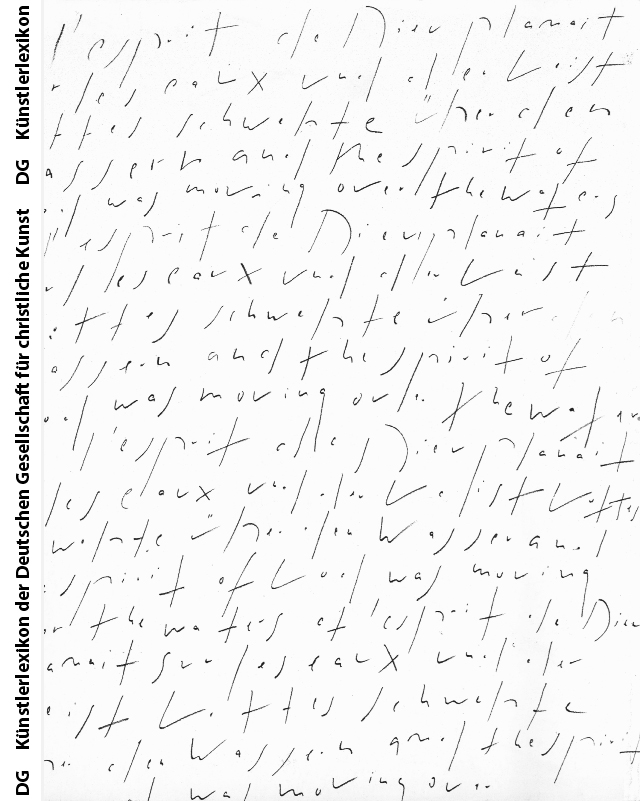 DG Künstlerlexikon der Deutschen Gesellschaft für christliche Kunst DG Künstlerlexikon
l'esprit de Dieu planait
les eaux und der Geist
ttes schwebte über den
assern and the spirit of
was moving over the waters
l'esprit de Dieu planait
les eaux und der Geist
ttes schwebte über
assern and the spirit of
was moving over the wat
l'esprit de Dieu planait
les eaux und der Geist Gottes
webte über den Wasser and
spirit of God was moving
the waters of l'esprit de Dieu
anait sur les eaux und der
eist Gottes schwebte
den Wassern and the spirit
was moving over